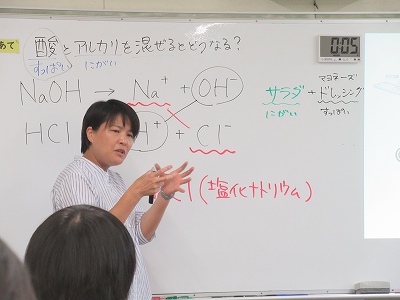 めあて
酸とアルカリを混ぜるとどうなる?
すっぱい にがい
NaOH → Na⁺ + OH⁻
HCl H⁺ + Cl⁻
l (塩化ナトリウム)
マヨネーズ
サラダ + ドレッシング
にがい すっぱい
0:05